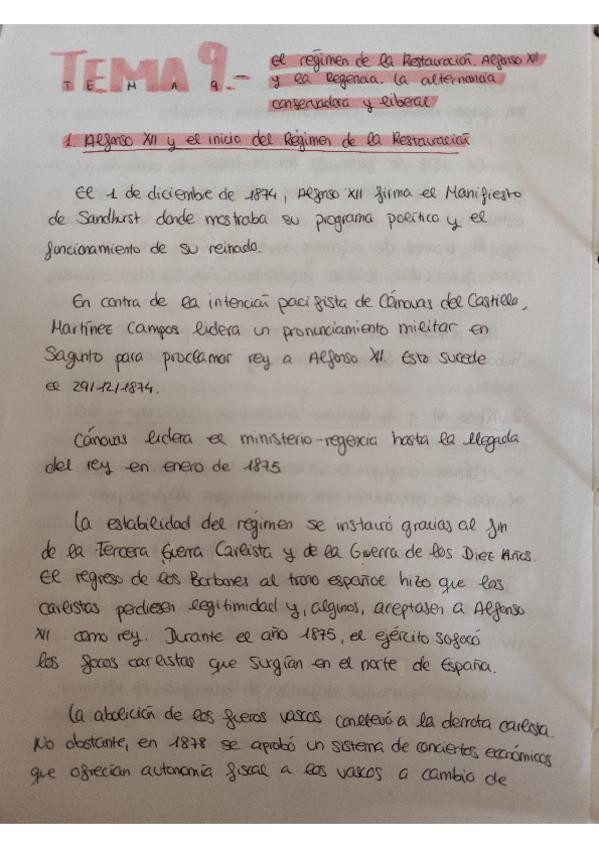 TEMA 9.-
T E M A 9
El régimen de la Restauración. Alfonso XII
y la Regencia. La alternancia
conservadora y liberal
1. Alfonso XII y el inicio del Régimen de la Restauración
El 1 de diciembre de 1874, Alfonso XII firma el Manifiesto
de Sandhurst donde mostraba su programa político y el
funcionamiento de su reinado.
En contra de la intención pacifista de Cánovas del Castillo,
Martínez Campos lidera un pronunciamiento militar en
Sagunto para proclamar rey a Alfonso XII. Esto sucede
el 29/12/1874.
Cánovas lidera el ministerio-regencia hasta la llegada
del rey en enero de 1875
La estabilidad del régimen se instauró gracias al fin
de la Tercera Guerra Carlista y de la Guerra de los Diez Años.
El regreso de los Borbones al trono español hizo que los
carlistas perdiesen legitimidad y, algunos, aceptasen a Alfonso
XII como rey. Durante el año 1875, el ejército sofocó
los focos carlistas que surgían en el norte de España.
La abolición de los fueros vascos conllevó a la derrota carlista.
No obstante, en 1878 se aprobó un sistema de conciertos económicos
que ofrecían autonomía fiscal a los vascos a cambio de